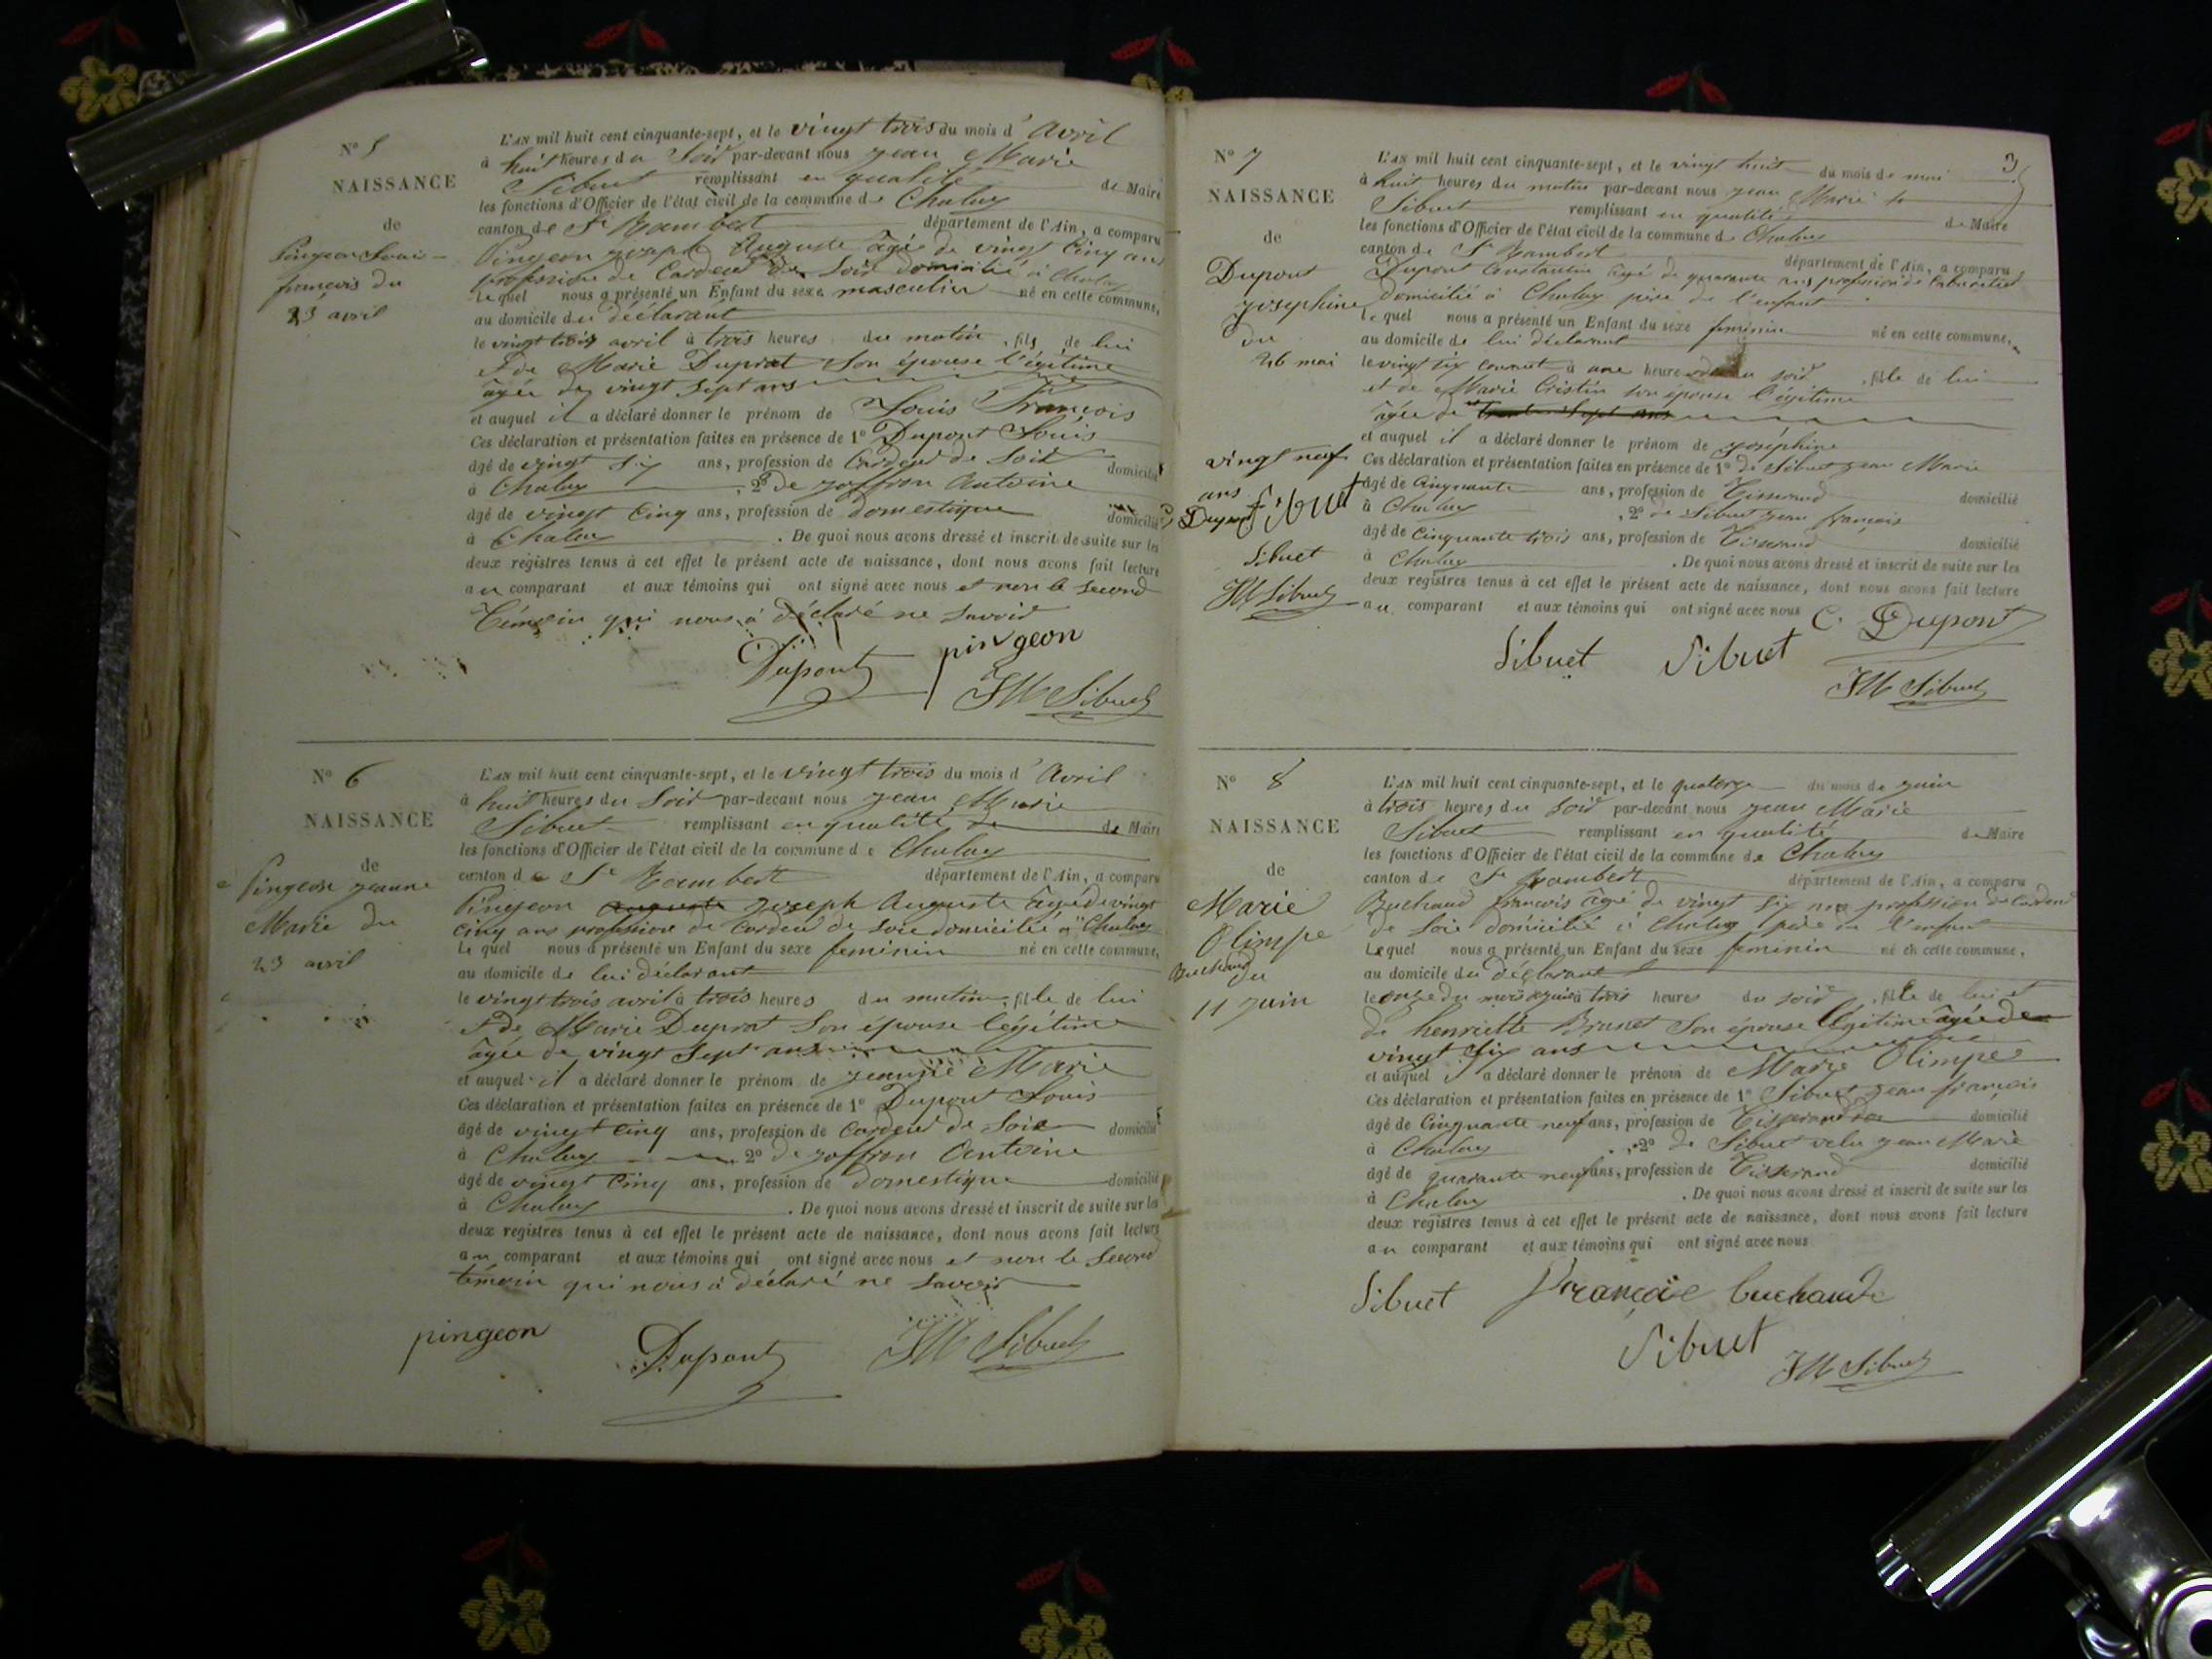 N° 5
NAISSANCE
de
Pingeon Louis
françois du
23 avril
L'AN mil huit cent cinquante-sept, et le vingt trois du mois d'avril
à huit heures du Soir par-devant nous jean Marie
Sibuet remplissant en qualité de Maire
les fonctions d'Officier de l'état civil de la commune de Chaley
canton de St Rambert département de l'Ain, a comparu
Pingeon joseph Auguste âgé de vingt Cinq ans
profession de Cardeur de Soie domicilié à Chaley
Lequel nous a présenté un Enfant du sexe masculin né en cette commune,
au domicile du déclarant
le vingt trois avril à trois heures du matin, fils de lui
& de Marie Duprat Son épouse légitime
âgée de vingt Sept ans
et auquel il a déclaré donner le prénom de Louis François
Ces déclaration et présentation faites en présence de 1° Dupont Louis
âgé de vingt Six ans, profession de Cardeur de Soie domicilié
à Chaley , 2° de joffron Antoine
âgé de vingt Cinq ans, profession de domestique domicilié
à Chaley . De quoi nous avons dressé et inscrit de suite sur les
deux registres tenus à cet effet le présent acte de naissance, dont nous avons fait lecture
au comparant et aux témoins qui ont signé avec nous et non le second
Témoin qui nous à déclaré ne Savoir
Dupont pingeon
JM Sibuet
N° 6
NAISSANCE
de
Pingeon jeanne
Marie du
23 avril
L'AN mil huit cent cinquante-sept, et le vingt trois du mois d'Avril
à huit heures du Soir par-devant nous jean Marie
Sibuet remplissant en qualité de de Maire
les fonctions d'Officier de l'état civil de la commune de Chaley
canton de St Rambert département de l'Ain, a comparu
Pingeon Auguste joseph Auguste âgé de vingt
Cinq ans profession de Cardeur de Soie domicilié à Chaley
Lequel nous a présenté un Enfant du sexe feminin né en cette commune,
au domicile de lui déclarant
le vingt trois avril à trois heures du matin, fille de lui
& de Marie Duprat Son épouse légitime
âgée de vingt Sept ans
et auquel il a déclaré donner le prénom de jeanne Marie
Ces déclaration et présentation faites en présence de 1° Dupont Louis
âgé de vingt Cinq ans, profession de Cardeur de Soie domicilié
à Chaley 2° de joffron Antoine
âgé de vingt Cinq ans, profession de Domestique domicilié
à Chaley . De quoi nous avons dressé et inscrit de suite sur les
deux registres tenus à cet effet le présent acte de naissance, dont nous avons fait lecture
au comparant et aux témoins qui ont signé avec nous et non le Second
témoin qui nous à déclaré ne Savoir
pingeon Dupont JM Sibuet
3
N° 7
NAISSANCE
de
Dupont
josephine
du
26 mai
vingt neuf
ans
C Dupont Sibuet
Sibuet
JM Sibuet
L'AN mil huit cent cinquante-sept, et le vingt huit du mois de mai
à huit heures du matin par-devant nous jean Marie
Sibuet remplissant en qualité de Maire
les fonctions d'Officier de l'état civil de la commune de Chaley
canton de St Rambert département de l'Ain, a comparu
Dupont Constantin âgé de quarante ans profession de Cabaretier
domicilié à Chaley père de l'enfant
Lequel nous a présenté un Enfant du sexe feminin né en cette commune,
au domicile de lui déclarant
le vingt six courant à une heure du soir, fille de lui
et de Marie Cristin son épouse légitime
âgée de trente Sept ans
et auquel il a déclaré donner le prénom de joséphine
Ces déclaration et présentation faites en présence de 1° de Sibuet jean Marie
âgé de Cinquante ans, profession de Tisserand domicilié
à Chaley , 2° de Sibuet jean françois
âgé de Cinquante trois ans, profession de Tisserand domicilié
à Chaley . De quoi nous avons dressé et inscrit de suite sur les
deux registres tenus à cet effet le présent acte de naissance, dont nous avons fait lecture
au comparant et aux témoins qui ont signé avec nous C. Dupont
Sibuet Sibuet
JM Sibuet
N° 8
NAISSANCE
de
Marie
Olimpe
Buchaud
du
11 juin
L'AN mil huit cent cinquante-sept, et le quatorze du mois de juin
à trois heures du Soir par-devant nous jean Marie
Sibuet remplissant en qualité de Maire
les fonctions d'Officier de l'état civil de la commune de Chaley
canton de St Rambert département de l'Ain, a comparu
Buchaud françois âgé de vingt Six ans profession de Cardeur
de Soie domicilié à Chaley père de l'enfant
Lequel nous a présenté un Enfant du sexe feminin né en cette commune,
au domicile du déclarant
le onze du mois de juin à trois heures du soir, fille de lui et
de henriette Brunet Son épouse légitime âgée de
vingt Six ans
et auquel il a déclaré donner le prénom de Marie Olimpe
Ces déclaration et présentation faites en présence de 1° Sibuet jean françois
âgé de Cinquante neuf ans, profession de Tisserand domicilié
à Chaley , 2° de Sibuet jean Marie
âgé de quarante neuf ans, profession de Tisserand domicilié
à Chaley . De quoi nous avons dressé et inscrit de suite sur les
deux registres tenus à cet effet le présent acte de naissance, dont nous avons fait lecture
au comparant et aux témoins qui ont signé avec nous
Sibuet françois buchaud
Sibuet JM Sibuet